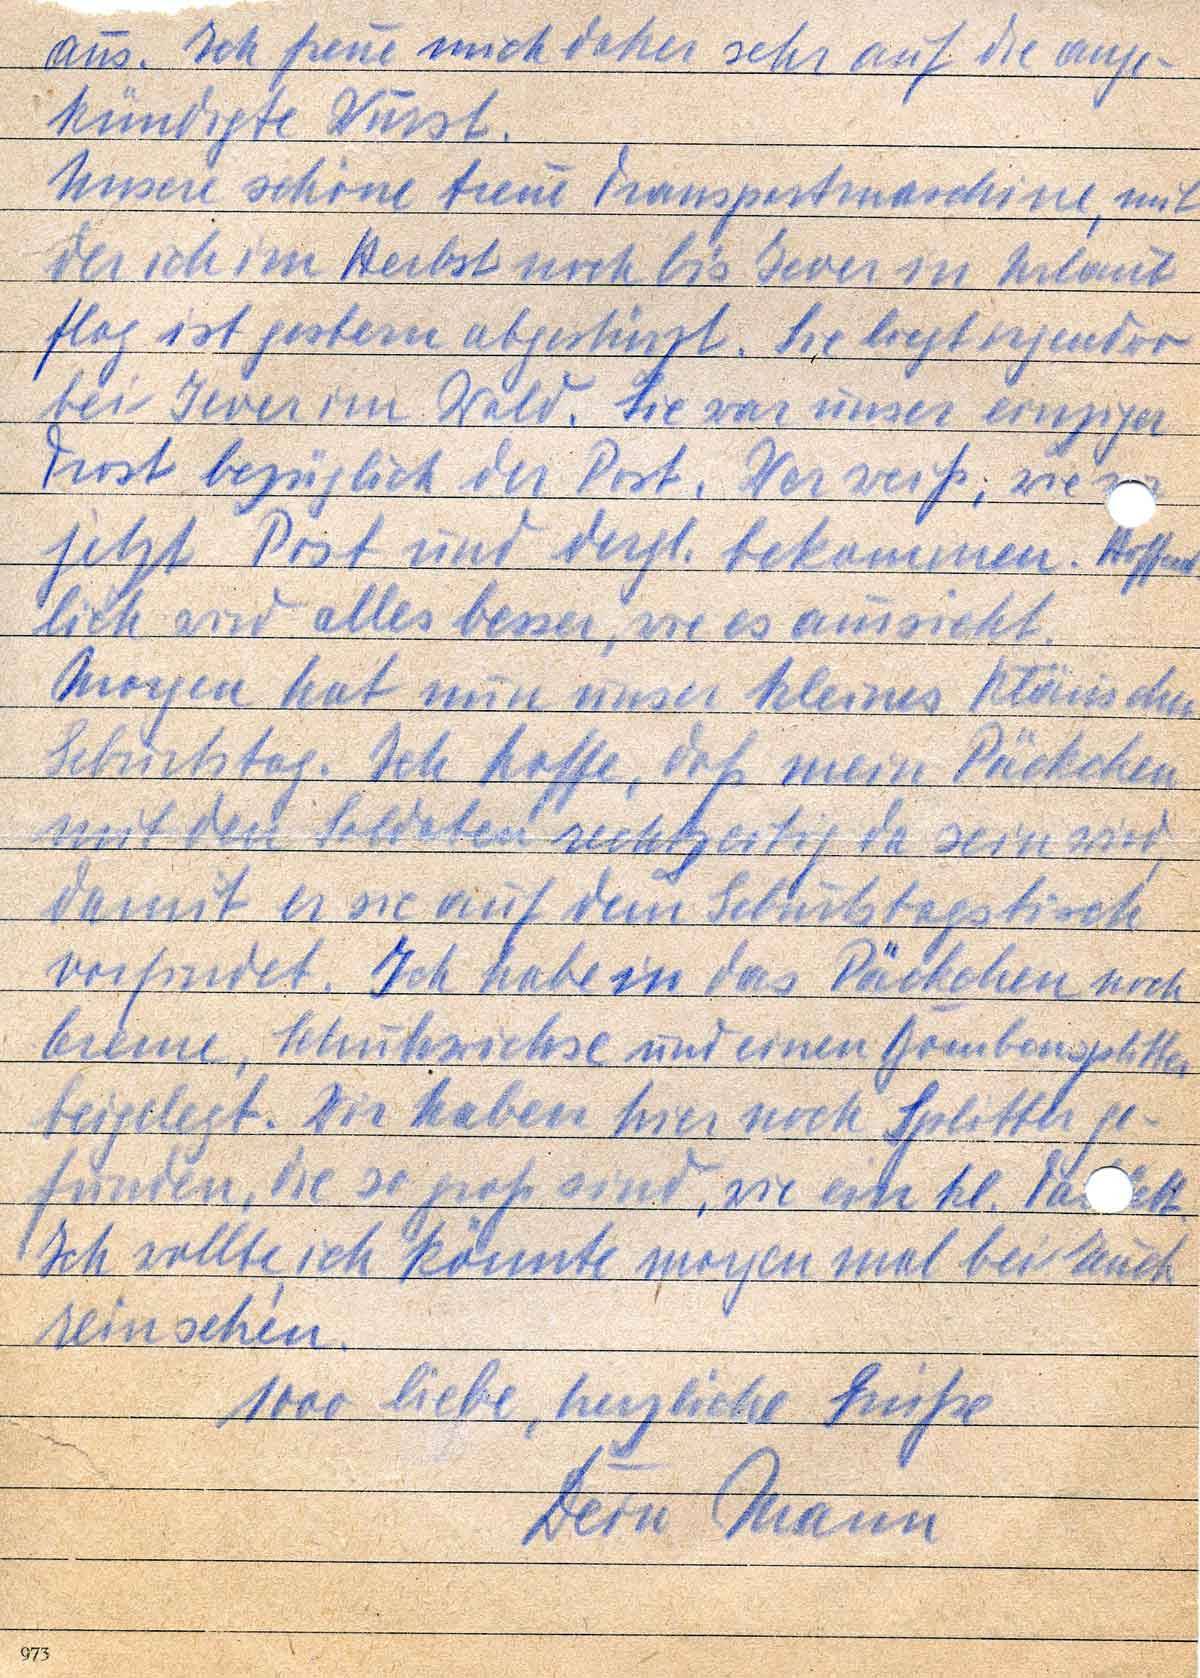 aus. Ich freue mich daher sehr auf die ange-
kündigte Wurst.
Unsere schöne treue Transportmaschine, mit
der ich im Herbst noch bis Jever in Urlaub
flog ist gestern abgestürzt. Sie liegt irgendwo
bei Jever im Wald. Sie war unser einziger
Trost bezüglich der Post. Wer weiß, wie
jetzt Post und dergl. bekommen. Hoffent
lich wird alles besser, wie es aussieht.
Morgen hat nun unser kleines Kläuschen
Geburtstag. Ich hoffe, daß mein Päckchen
mit den Soldaten rechtzeitig da sein wird,
damit er sie auf dem Geburtstagstisch
vorfindet. Ich habe in das Päckchen noch
Creme, Schuhwichse und einen Bombensplitter
beigelegt. Wir haben hier noch Splitter ge-
funden, die so groß sind, wie ein kl.
Ich wollte ich könnte morgen mal bei Euch
reinsehen.
1000 liebe, herzliche Grüße
Dein Mann
973